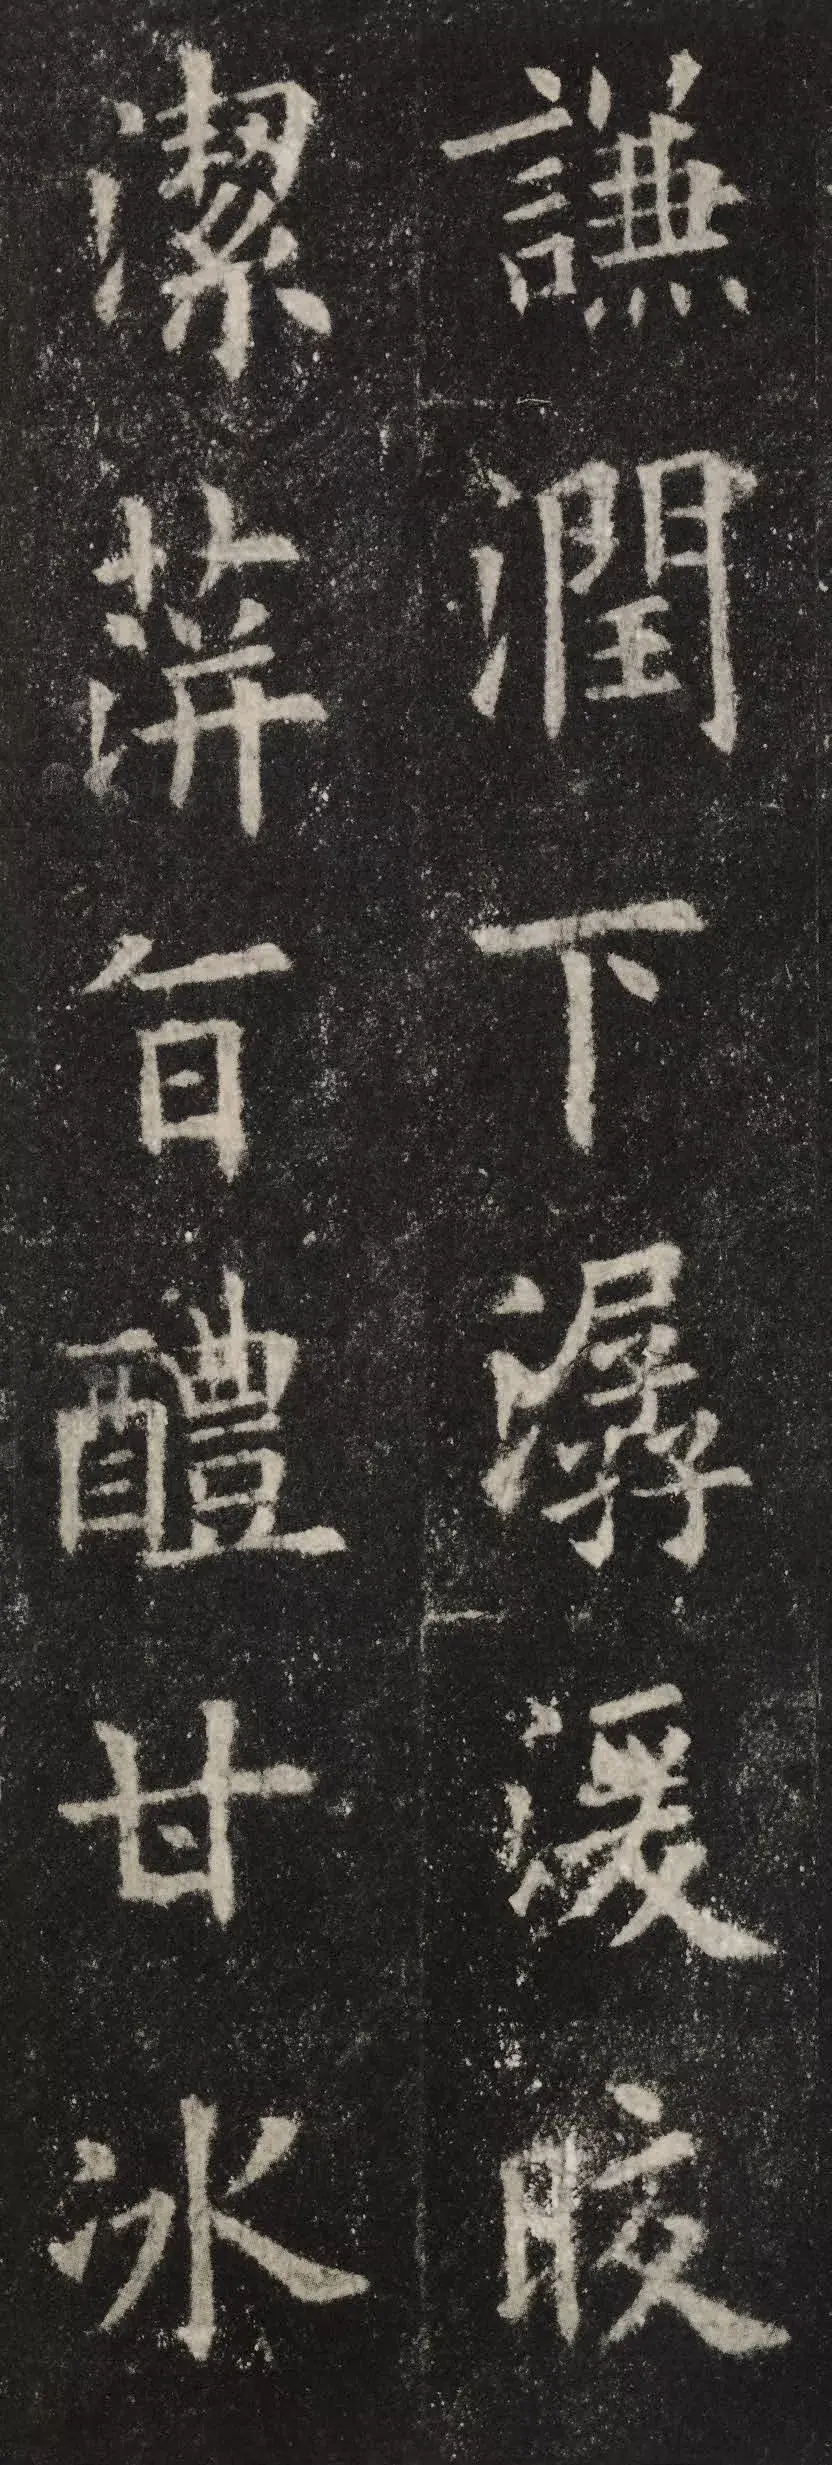 謙潤下潺湲皎
潔蓱旨醴甘冰